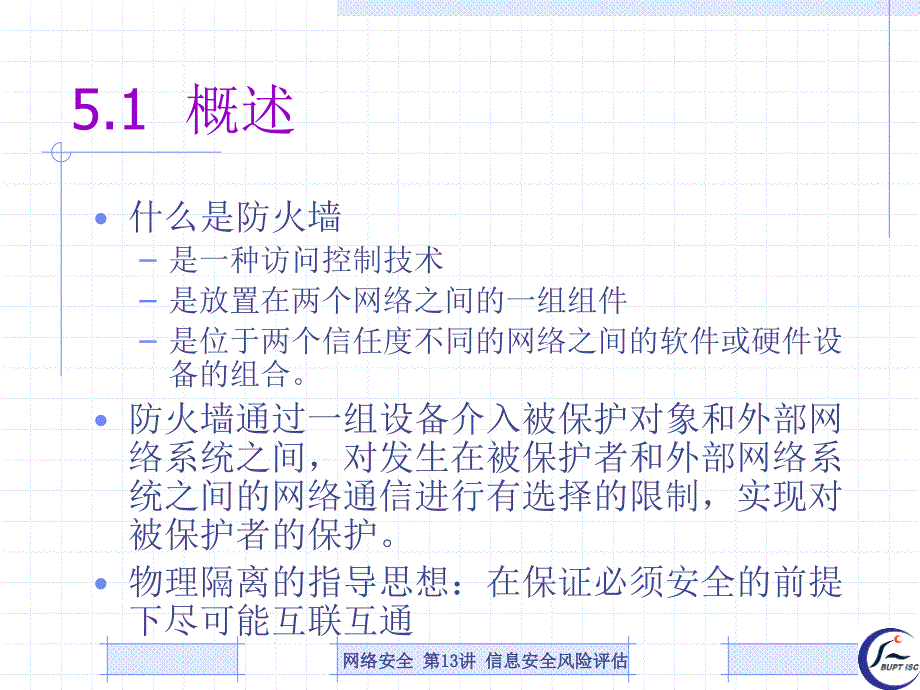 5.1 概述
• 什么是防火墙
– 是一种访问控制技术
– 是放置在两个网络之间的一组组件
– 是位于两个信任度不同的网络之间的软件或硬件设
备的组合。
• 防火墙通过一组设备介入被保护对象和外部网
络系统之间，对发生在被保护者和外部网络系
统之间的网络通信进行有选择的限制，实现对
被保护者的保护。
• 物理隔离的指导思想：在保证必须安全的前提
下尽可能互联互通
网络安全 第13讲 信息安全风险评估
BUPT ISC